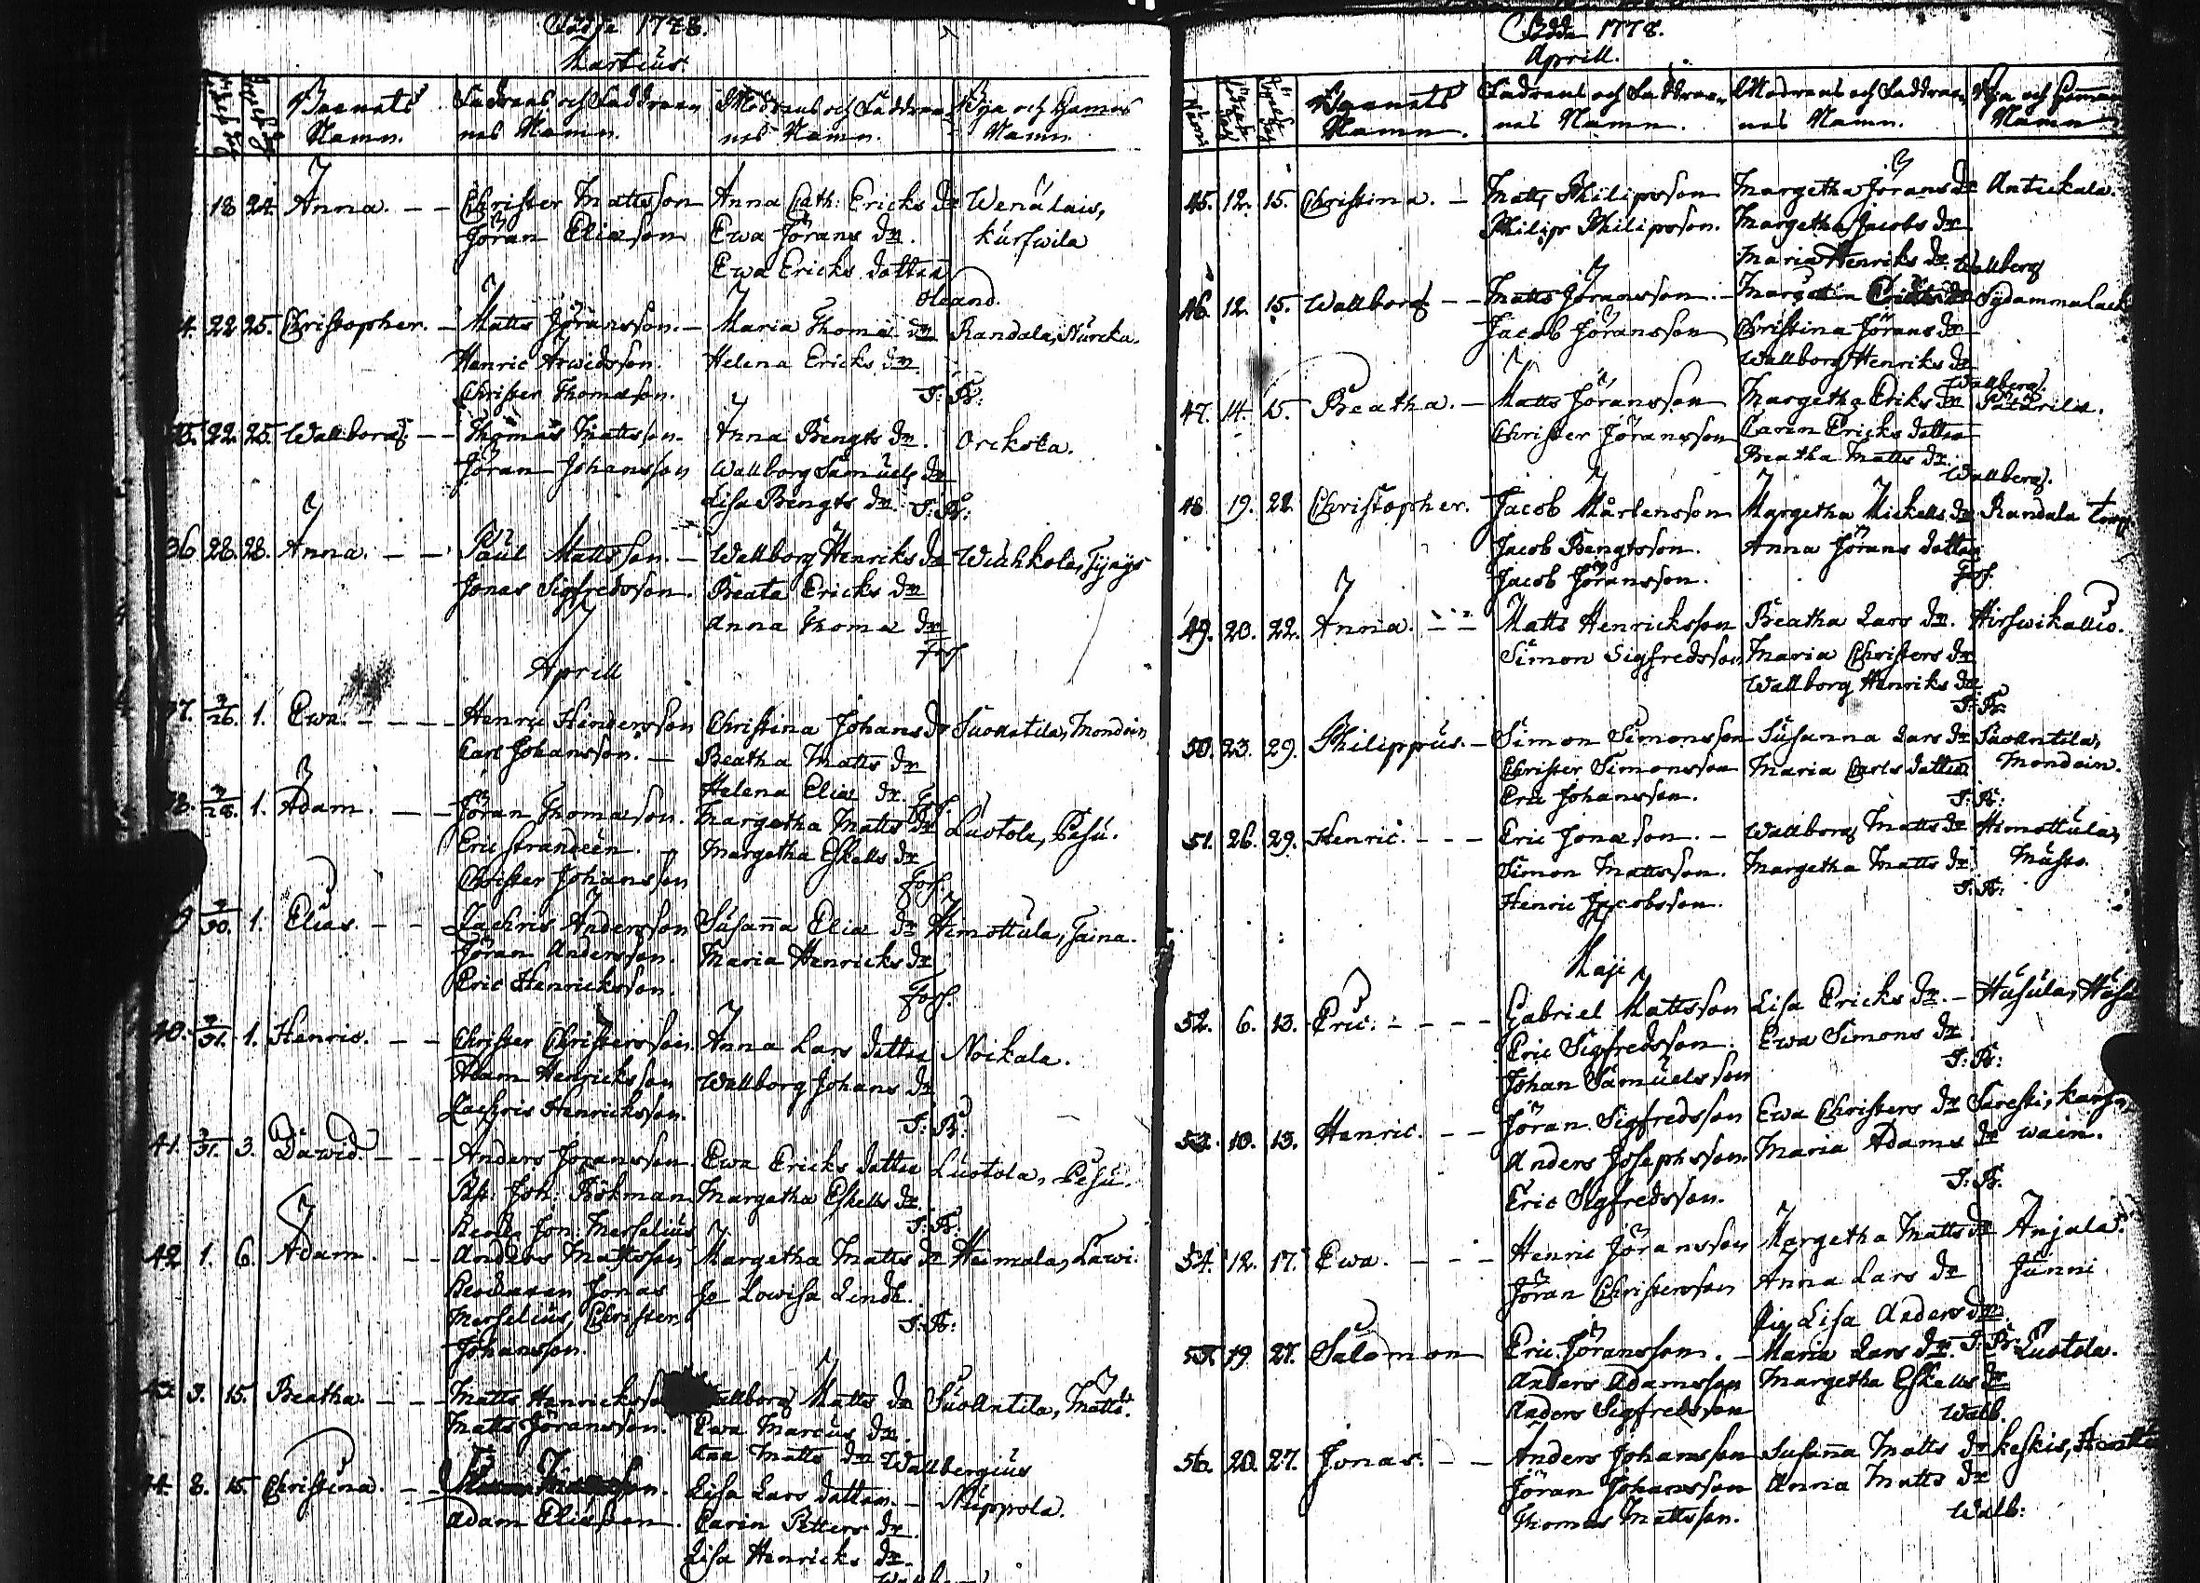 Födde 1778.
Martius.
Barnets Namn.
Fadrens och Faddrar-
nes Namn.
Modrens och Faddrar-
nes Namn.
Bya och Hemms
Namn.
18 24. Anna. - - Christer Mattsson Anna Cath: Ericks dr Wenälais,
Jöran Eliæson Ewa Jörans dr. Kurswila
Ewa Ericks dotter
4. 22 25. Christopher. - Matts Jöransson. - Maria Thomæ dr Randala, Nurcka.
Henric Arwidsson. Helena Ericks dr.
Christer Thomæson. S: B:
35. 22. 25. Wallborg. - - Thomas Mattsson. Anna Bengts dr. Orckota.
Jöran Johansson Wallborg Samuels dr
Lisa Bengts dr. S: B:
36 28. 28. Anna. - - Paul Mattsson. - Wallborg Henriks dr Wiahkola, Tyays
Jonas Sigfredsson. Beata Ericks dr
Anna Thomæ dr
Fors
Aprill
37. 3/26. 1. Ewa. - - - Henric Hindersson Christina Johans dr Suoantila, Mondoin
Carl Johansson. - Beatha Matts dr
Helena Eliæ dr.
38. 3/28. 1. Adam. - - Jöran Thomæson. Margetha Matts dr Luotola, Pesu.
Eric Strandeen. Margetha Eskells dr
Christer Johansson Fors.
9 3/30. 1. Elias. - - Zachris Andersson Susanna Eliæ dr Himottula, Taina.
Jöran Andersson. Maria Henricks dr
Eric Henricksson. Fors.
40. 3/31. 1. Henric. - - Christer Christersson Anna Lars dotter Noikala.
Adam Henricksson Wallborg Johans dr
Zachris Henricksson. S: B:
41. 3/31. 3. Dawid. - - Anders Jöransson. Ewa Ericks dotter Luotola, Pesu.
Joh: Bökman Margetha Eskells dr.
Jon: Merselius S: B:
42 1. 6. Adam. - - Anders Mattsson Margetha Matts dr Haimala, Lawi.
Jonas Lowisa Lindb.
Merselius, Christer S: B:
Johansson.
43. 3. 15. Beatha. - - - Matts Henricksson Wallborg Matts dr Suoantila, Matts.
Matts Jöransson. Ewa Marcus dr.
Matts dr Wallbergius
4. 8. 15. Christina. - - Lisa Lars dotter. - Nuppola.
Adam Eliæson. Carin Petters dr.
Lisa Henricks dr.
Födde 1778.
Aprill.
Barnets
Namn.
Fadrens och Faddrar-
nes Namn.
Modrens och Faddrar-
nes Namn.
Bya och Hemms
Namn
45. 12. 15. Christina. - Matts Philipsson Margetha Jörans dr Antickala.
Philip Philipsson. Margetha Jacobs dr
Maria Henriks dr. Wallberg
46. 12. 15. Wallborg - - Matts Jöransson. - Margetha Ericks dr Sydammalack
Jacob Jöransson Christina Jörans dr
Wallborg Henriks dr
Wallberg.
47. 14. 15. Beatha. - Matts Jöransson Margetha Eriks dr
Christer Jöransson Carin Ericks dotter
Beatha Matts dr.
Wallberg.
48 19. 22 Christopher. Jacob Mårtensson Margetha Mickells dr Randala torp
Jacob Bengtsson. Anna Jörans dotter
Jacob Jöransson. Fors
49. 20. 22. Anna. - - Matts Henricksson Beatha Lars dr. Hirswikallio.
Simon Sigfredsson Maria Christers dr
Wallborg Henriks dr
S: B:
50. 23. 29. Philippus. - Simon Simonsson Susanna Lars dr Suoantila,
Christer Simonsson Maria Carls dotter Mondoin.
Eric Johansson. S: B:
51. 26. 29. Henric. - - - Eric Jonæson. - Wallborg Matts dr Himottula,
Simon Mattsson. Margetha Matts dr. Musto.
Henric Jacobsson. S: B:
Maji
52. 6. 13. Eric. - - - - Gabriel Mattsson Lisa Ericks dr. - Husula, Husu
Eric Sigfredsson. Ewa Simons dr.
Johan Samuelsson S: B:
53. 10. 13. Henric. - - Jöran Sigfredsson Ewa Christers dr Saresti, Karja
Anders Josephsson. Maria Adams dr wain.
Eric Sigfredsson. S: B.
54. 12. 17. Ewa. - - - Henric Jöransson Margetha Matts dr Anjala.
Jöran Christersson Anna Lars dr Junni
Pig. Lisa Anders dr
S: B:
55. 19 27. Salomon Eric Jöransson. - Maria Lars dr. Luotola.
Anders Adamsson Margetha Eskells dr
Anders Sigfredsson Walb.
56. 20. 27. Jonas. - - Anders Johansson Susanna Matts dr Keskis,
Jöran Johansson Anna Matts dr
Thomas Mattsson. Walb: